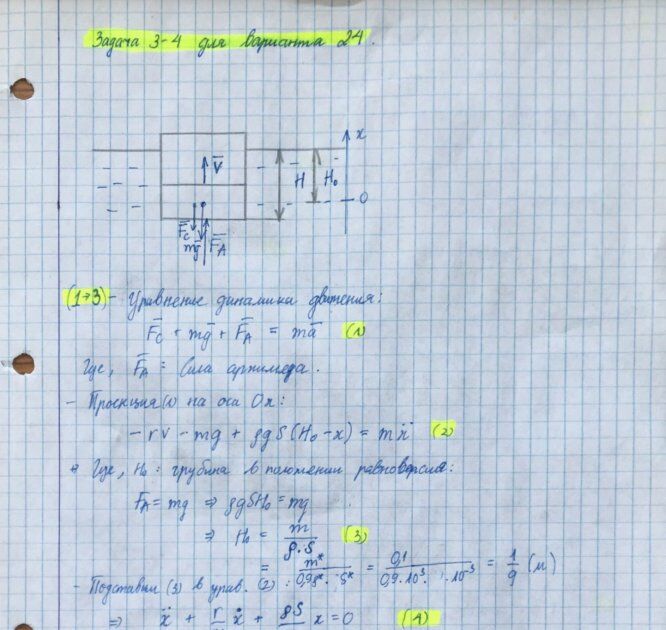 Задача 3-4 для варианта 24.
x
V̄
H
H₀
0
F̄c
mḡ
F̄A
(1→3) - Уравнение динамики движения:
F̄c + mḡ + F̄A = mā (1)
Где, F̄A = Сила архимеда.
- Проекция (1) на оси Ox:
- rv - mg + ρgS(H₀ - x) = mẍ (2)
* Где, H₀: глубина в положении равновесия:
FA = mg ⇒ ρgSH₀ = mg
⇒ H₀ = m / ρ.S (3)
= m* / 0,9ρ*. S* = 0,1 / 0,9.10³ . 10⁻³ = 1/9 (м)
- Подставим (3) в урав. (2):
⇒ ẍ + r/m ẋ + gS x = 0 (4)